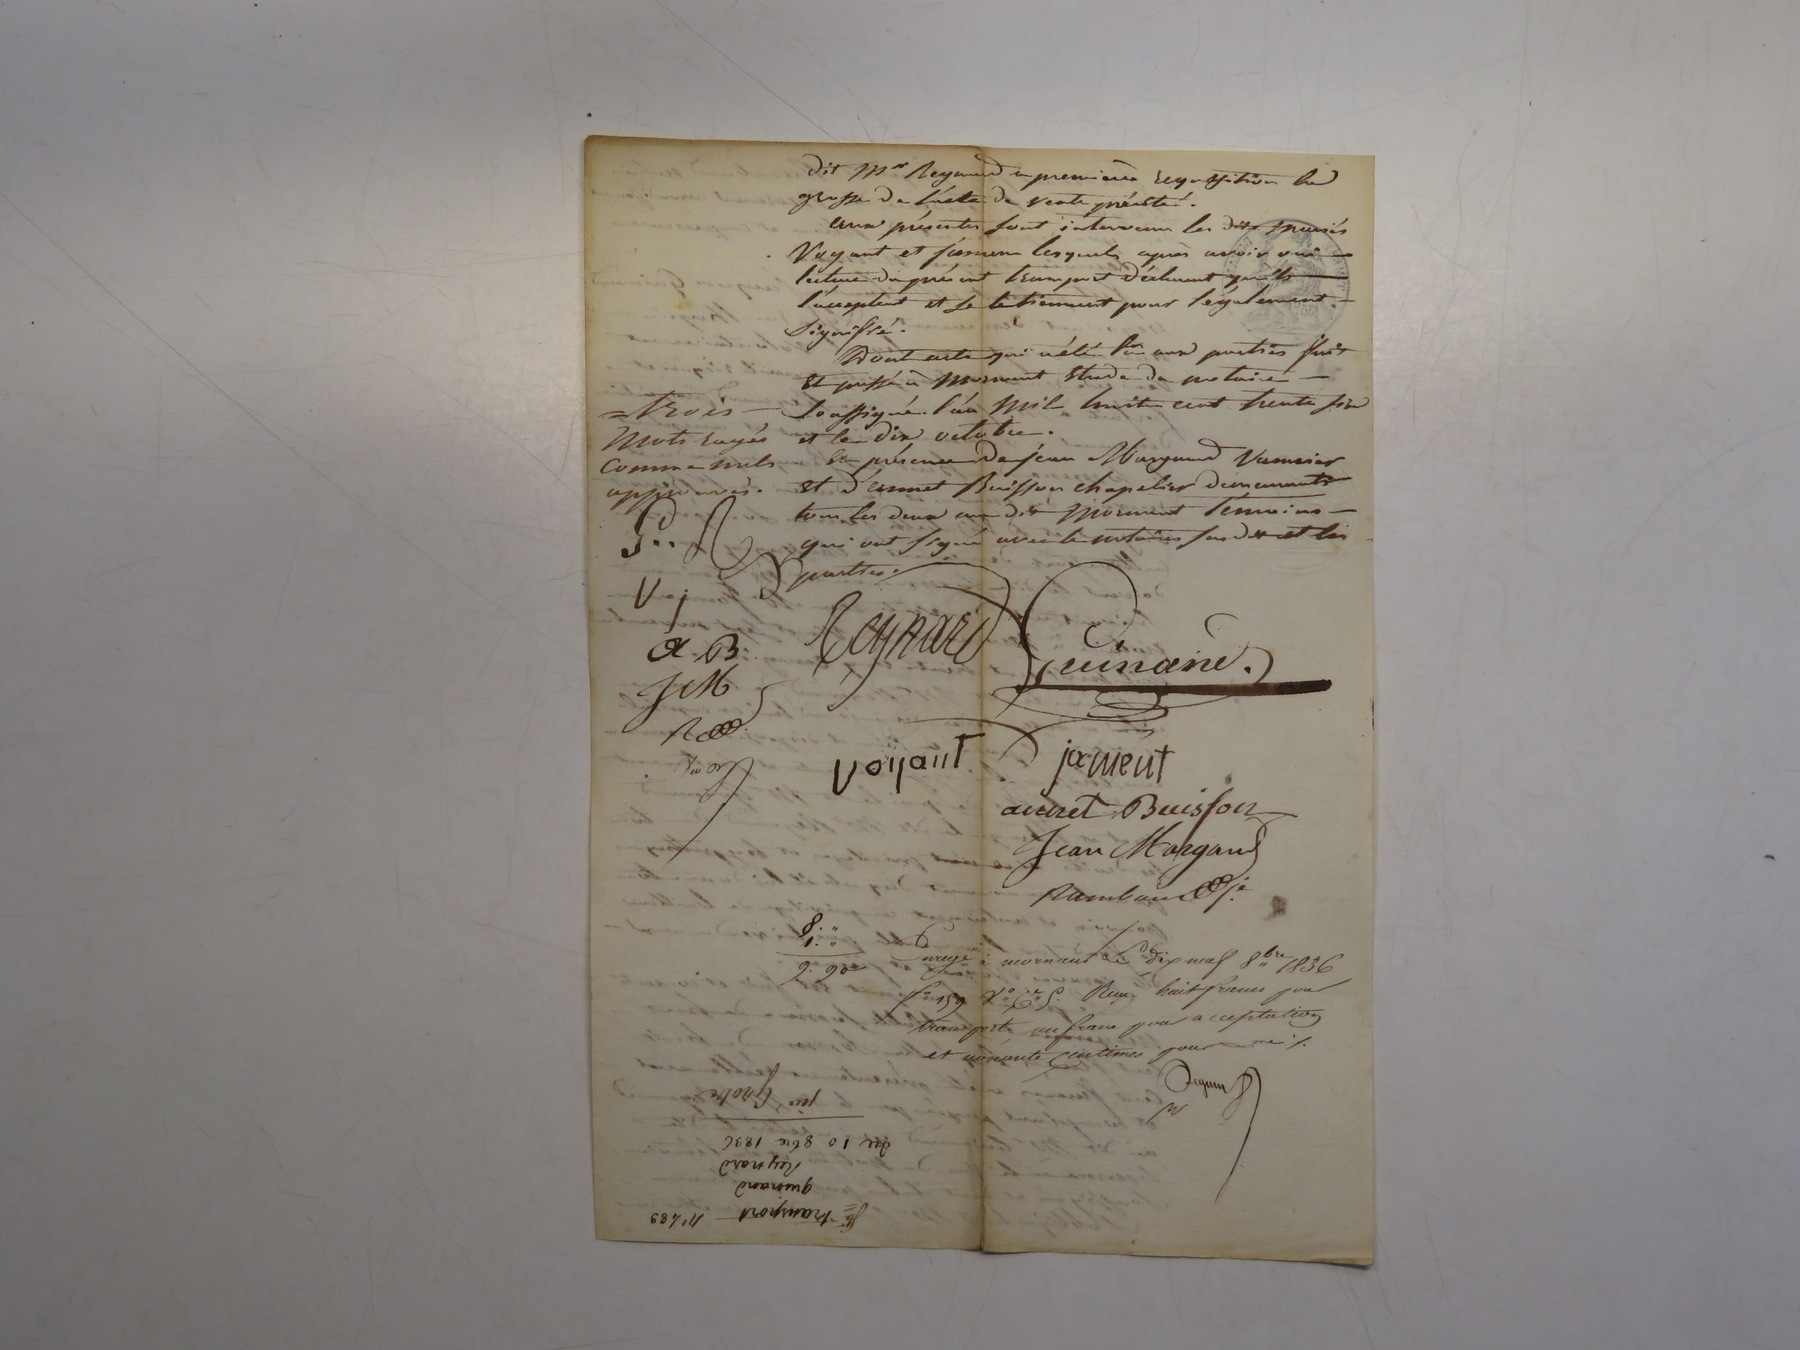 dit Mr Reynard a premiere requisition la
grosse de l'acte de vente précité.
aux présentes sont intervenus les dits mariés
Voyant et jament lesquels après avoir oui
lecture du présent transport déclarent qu'ils
l'acceptent et se le tiennent pour légalement
Signiffié.
Dont acte qui a été lu aux parties fait
et passé à Mornant Etude du notaire
Souffigné l'an Mil huit cent trente six
et le dix octobre.
En présence de jean Margaud
et d'annet Buisson chapelier demeurants
tous les deux au dit Mornant témoins
qui ont signé avec le notaire susdit et les
parties.
= trois
mots rayés
comme nuls
approuvés.
V j
a B
J M
Reynard Guinand.
Voyant jament
annet Buisson
Jean Margaud
Rambaud
8. "
1. "
9. 90
Enregé à mornant le dix neuf 8bre 1836
fo 159 Ro Ce 5. Reçu huit francs pour
transport, un franc pour acceptation
et nonante centimes pour
No 489
transport
guinand
Reynard
du 10 8bre 1836